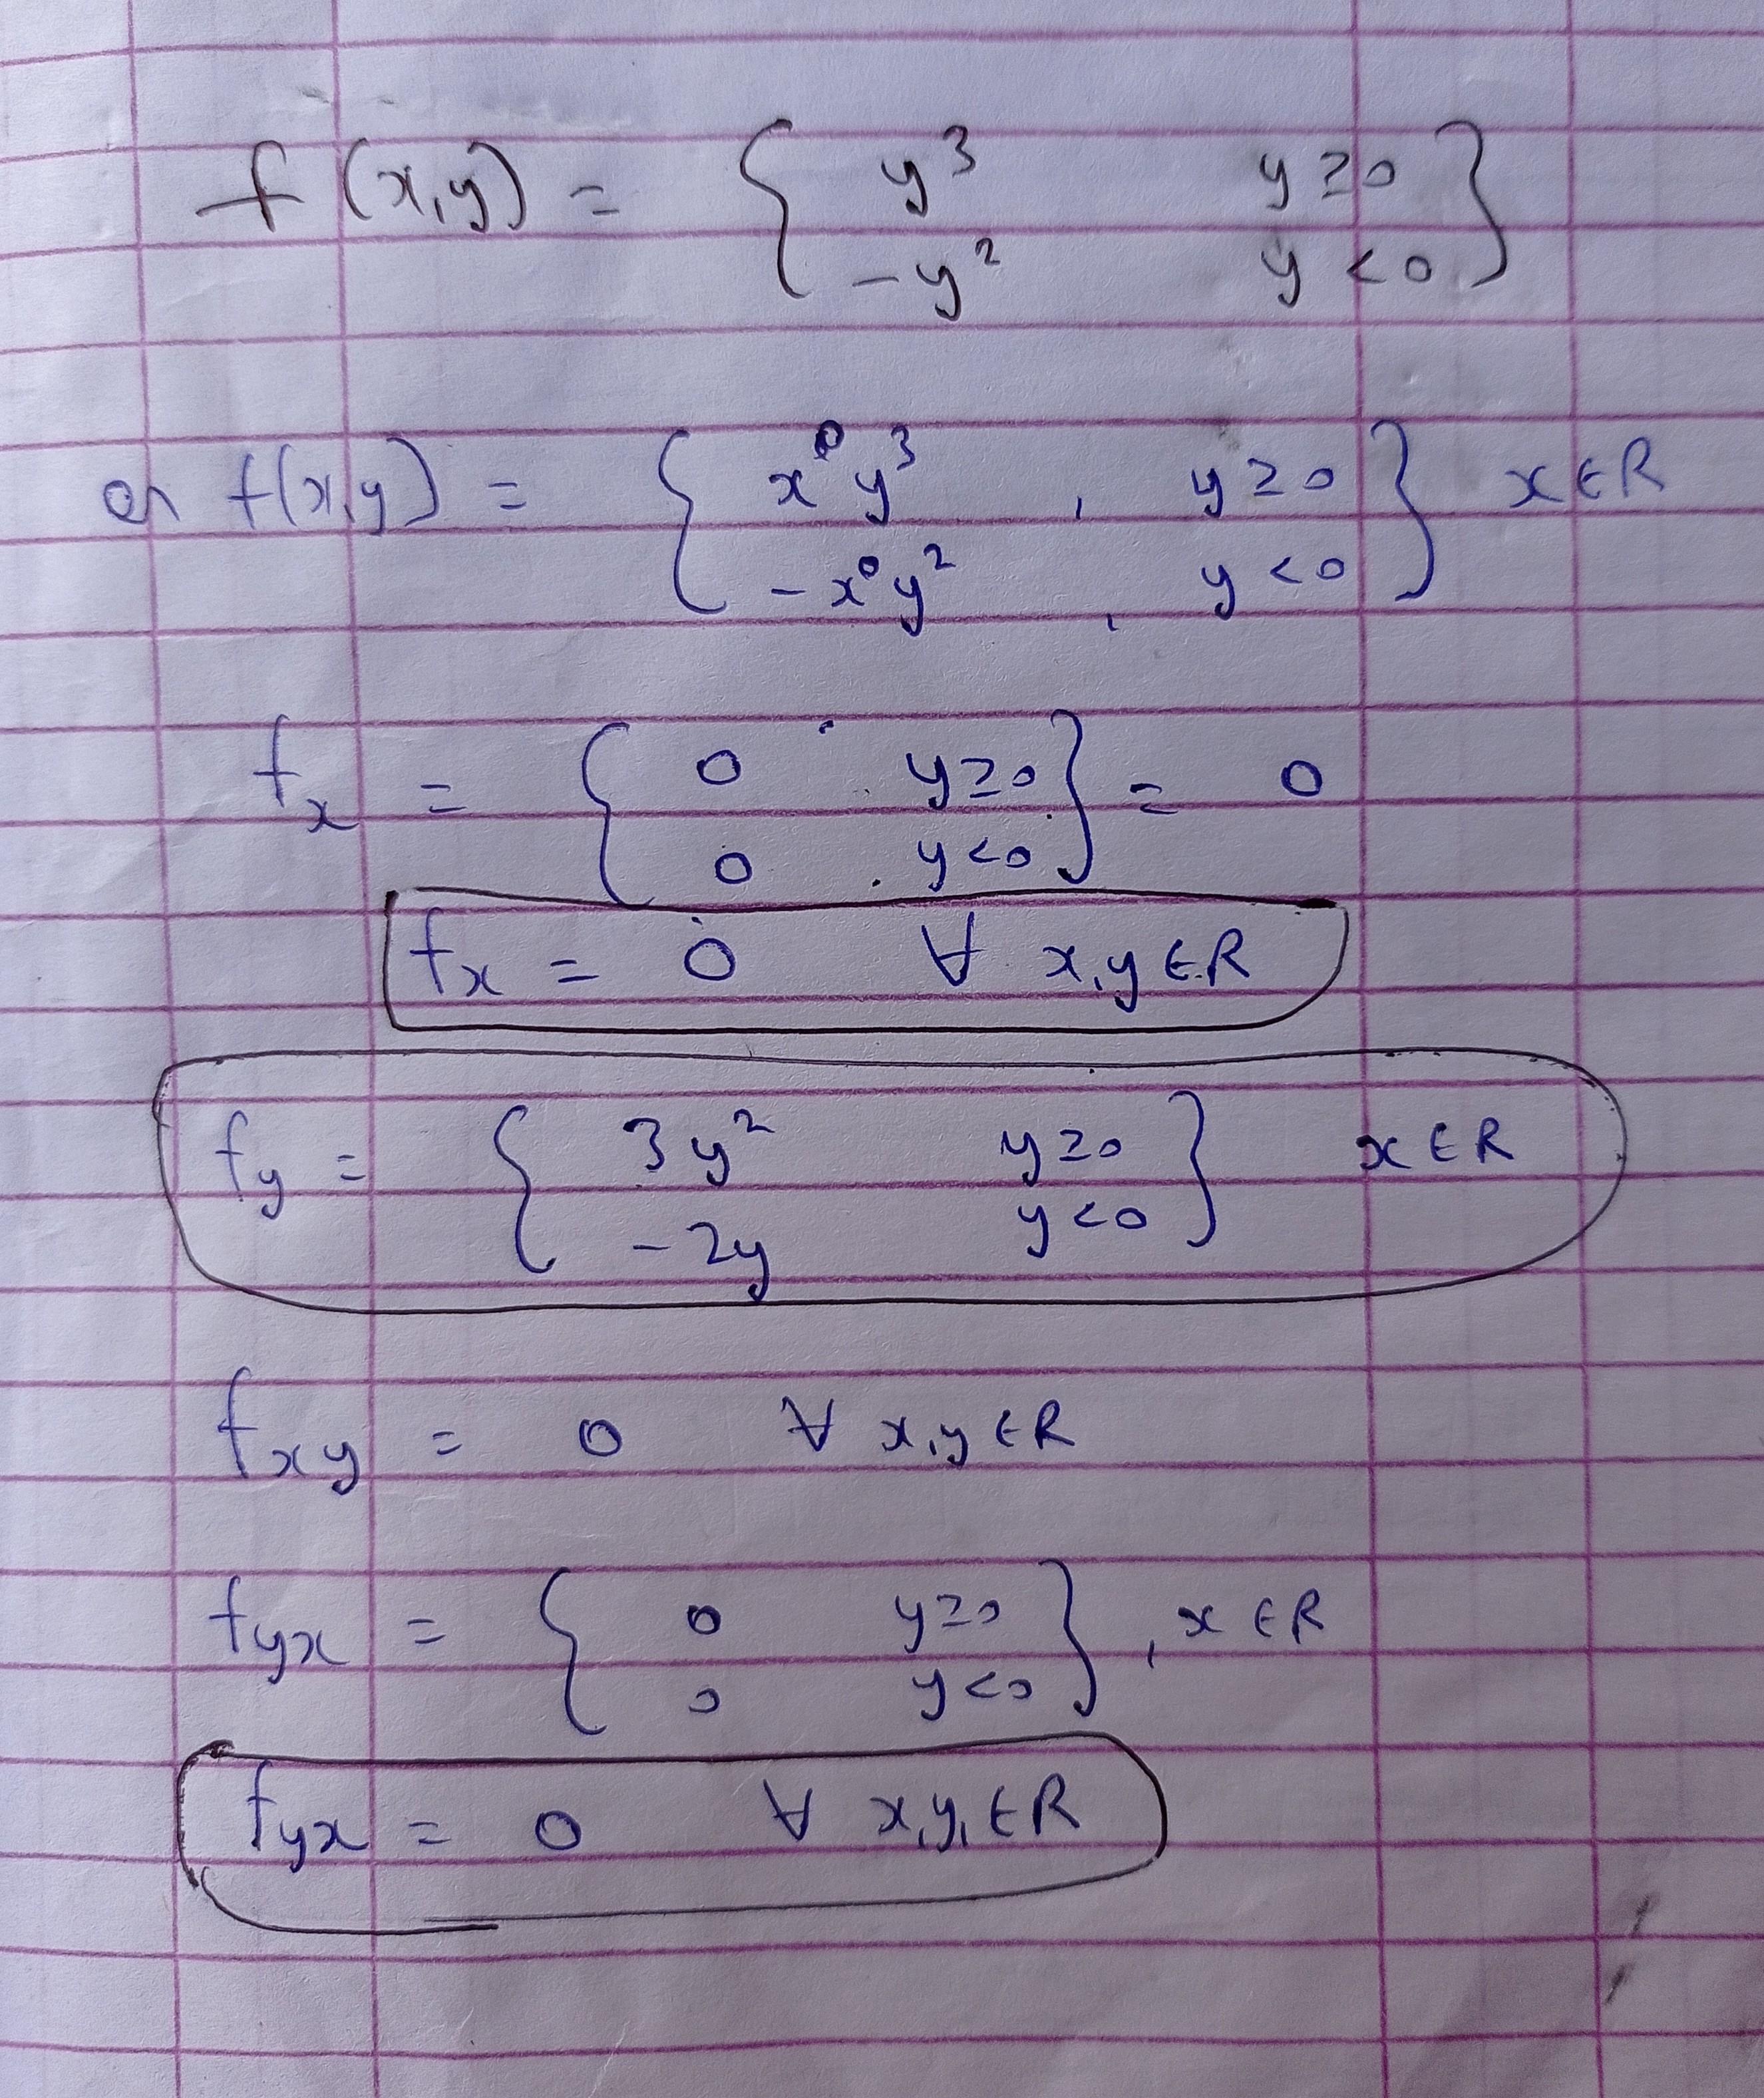 f(x,y) = { y³ y≥0
-y² y<0 }
or f(x,y) = { x⁰y³ , y≥0
-x⁰y² , y<0 } x∈R
fx = { 0 y≥0
0 y<0 } = 0
fx = 0 ∀ x,y∈R
fy = { 3y² y≥0
-2y y<0 } x∈R
fxy = 0 ∀ x,y∈R
fyx = { 0 y≥0
0 y<0 } , x∈R
fyx = 0 ∀ x,y,∈R